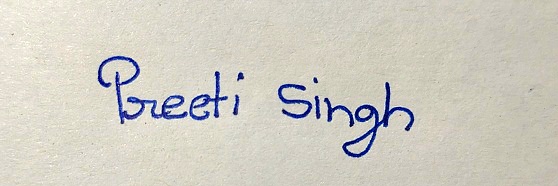 Preeti Singh